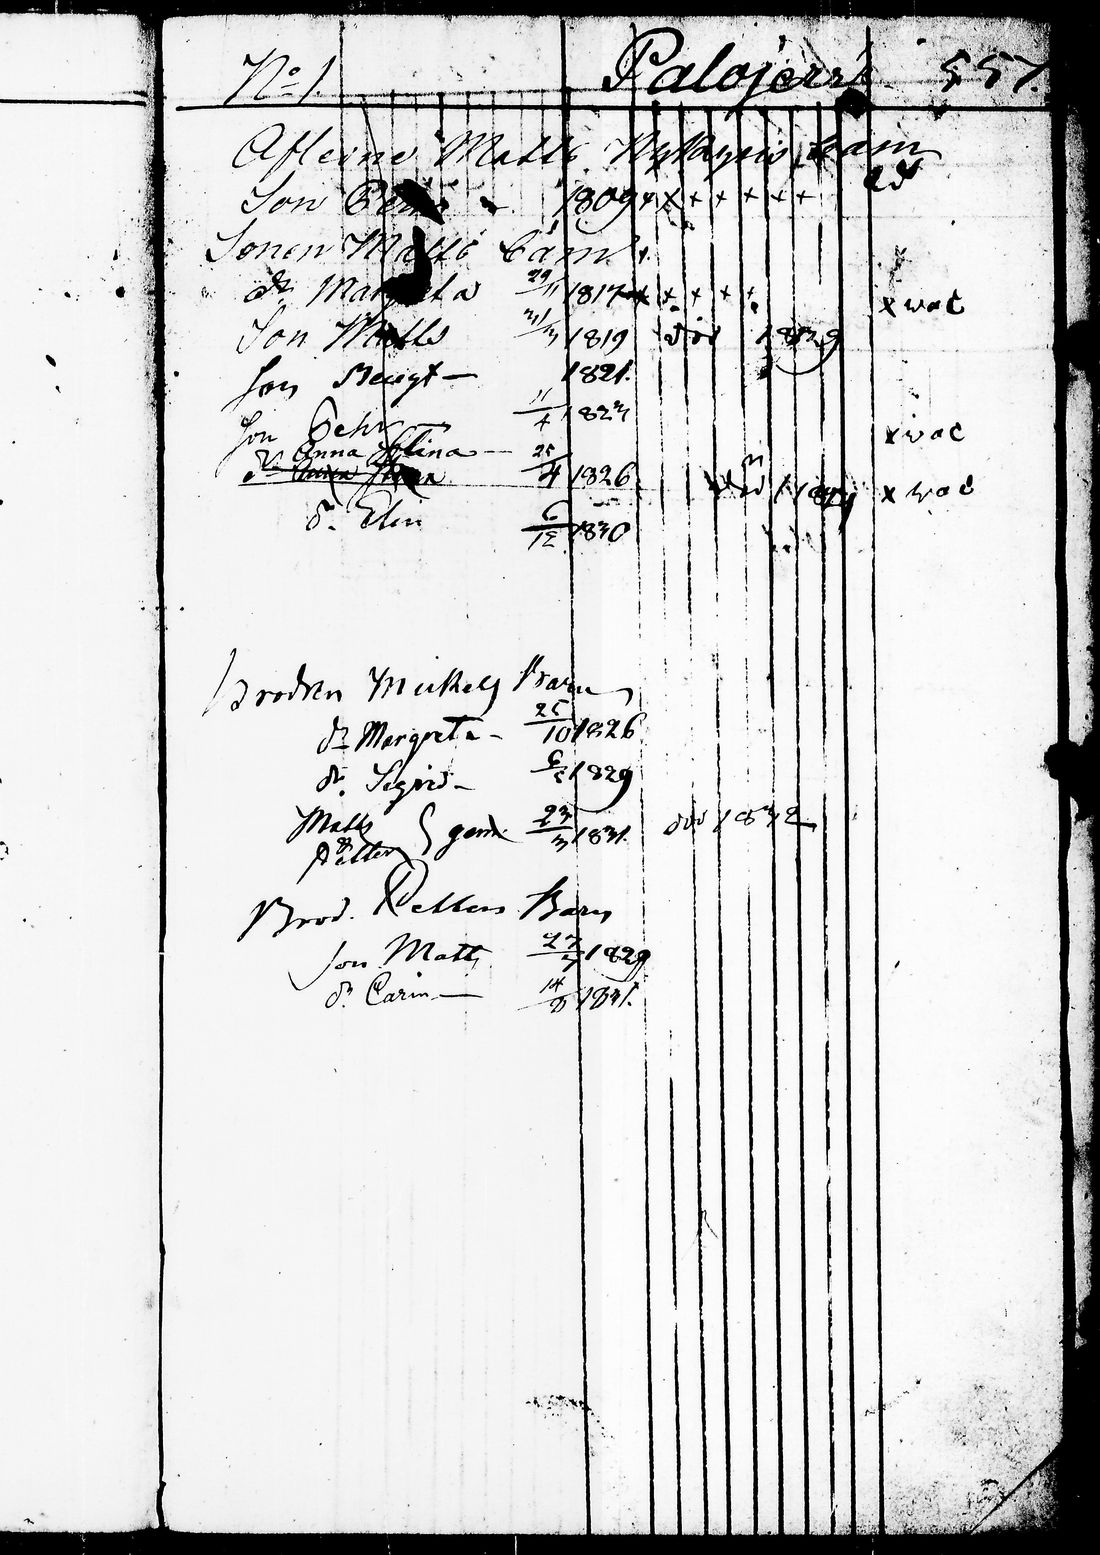 No 1. Palojerfvi 557.
Afledne Matts Nykyris barn
Son 1809 + x + + + + +
Sonen Matts barn.
dr Margreta 29/11 1817 + + + + x vac
Son Matts 31/3 1819 död 1839
Son Bengt — 1821.
Son Pehr 11/4 1823 x vac
dr Anna Stina — 25/4 1826 död x vac
dr. Elin 6/12 1830
Brodren Mickels Barn
dr Margreta - 25/10 1826
dr. Segrid - 1829
Matts
& Petter } 23/3 1831. död 1832
Brod. Petters Barn
Son Matts 27/7 1829
dr. Carin — 14/8 1831.